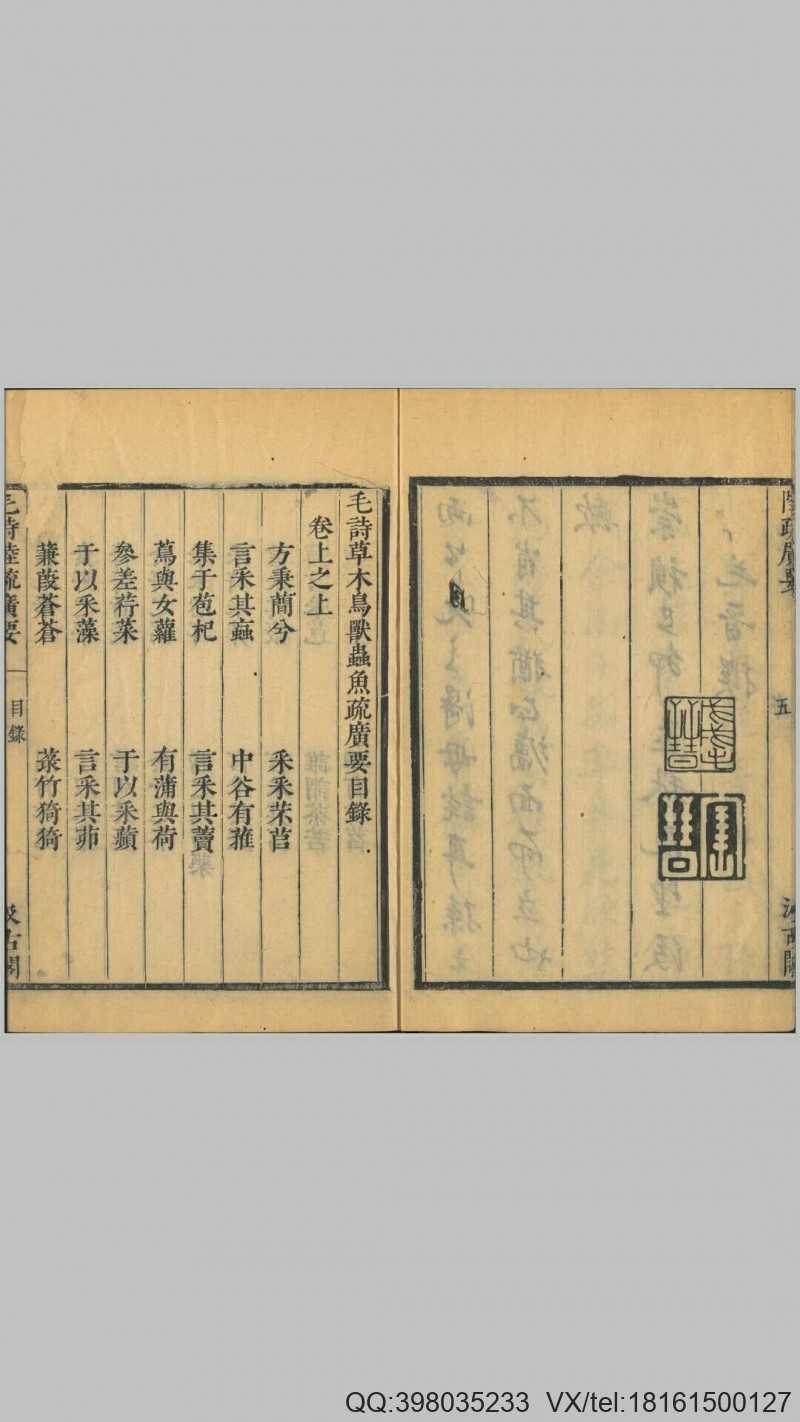 陸疏廣要
五
汲古閣
毛詩草木鳥獸蟲魚疏廣要目錄
卷上之上
方秉蕳兮 采采芣苢
言采其蝱 中谷有蓷
集于苞杞 言采其藚
蔦與女蘿 有蒲與荷
參差荇菜 于以采蘋
于以采藻 言采其茆
蒹葭蒼蒼 菉竹猗猗
毛詩陸疏廣要 目錄 汲古閣
QQ:398035233 VX/tel:18161500127